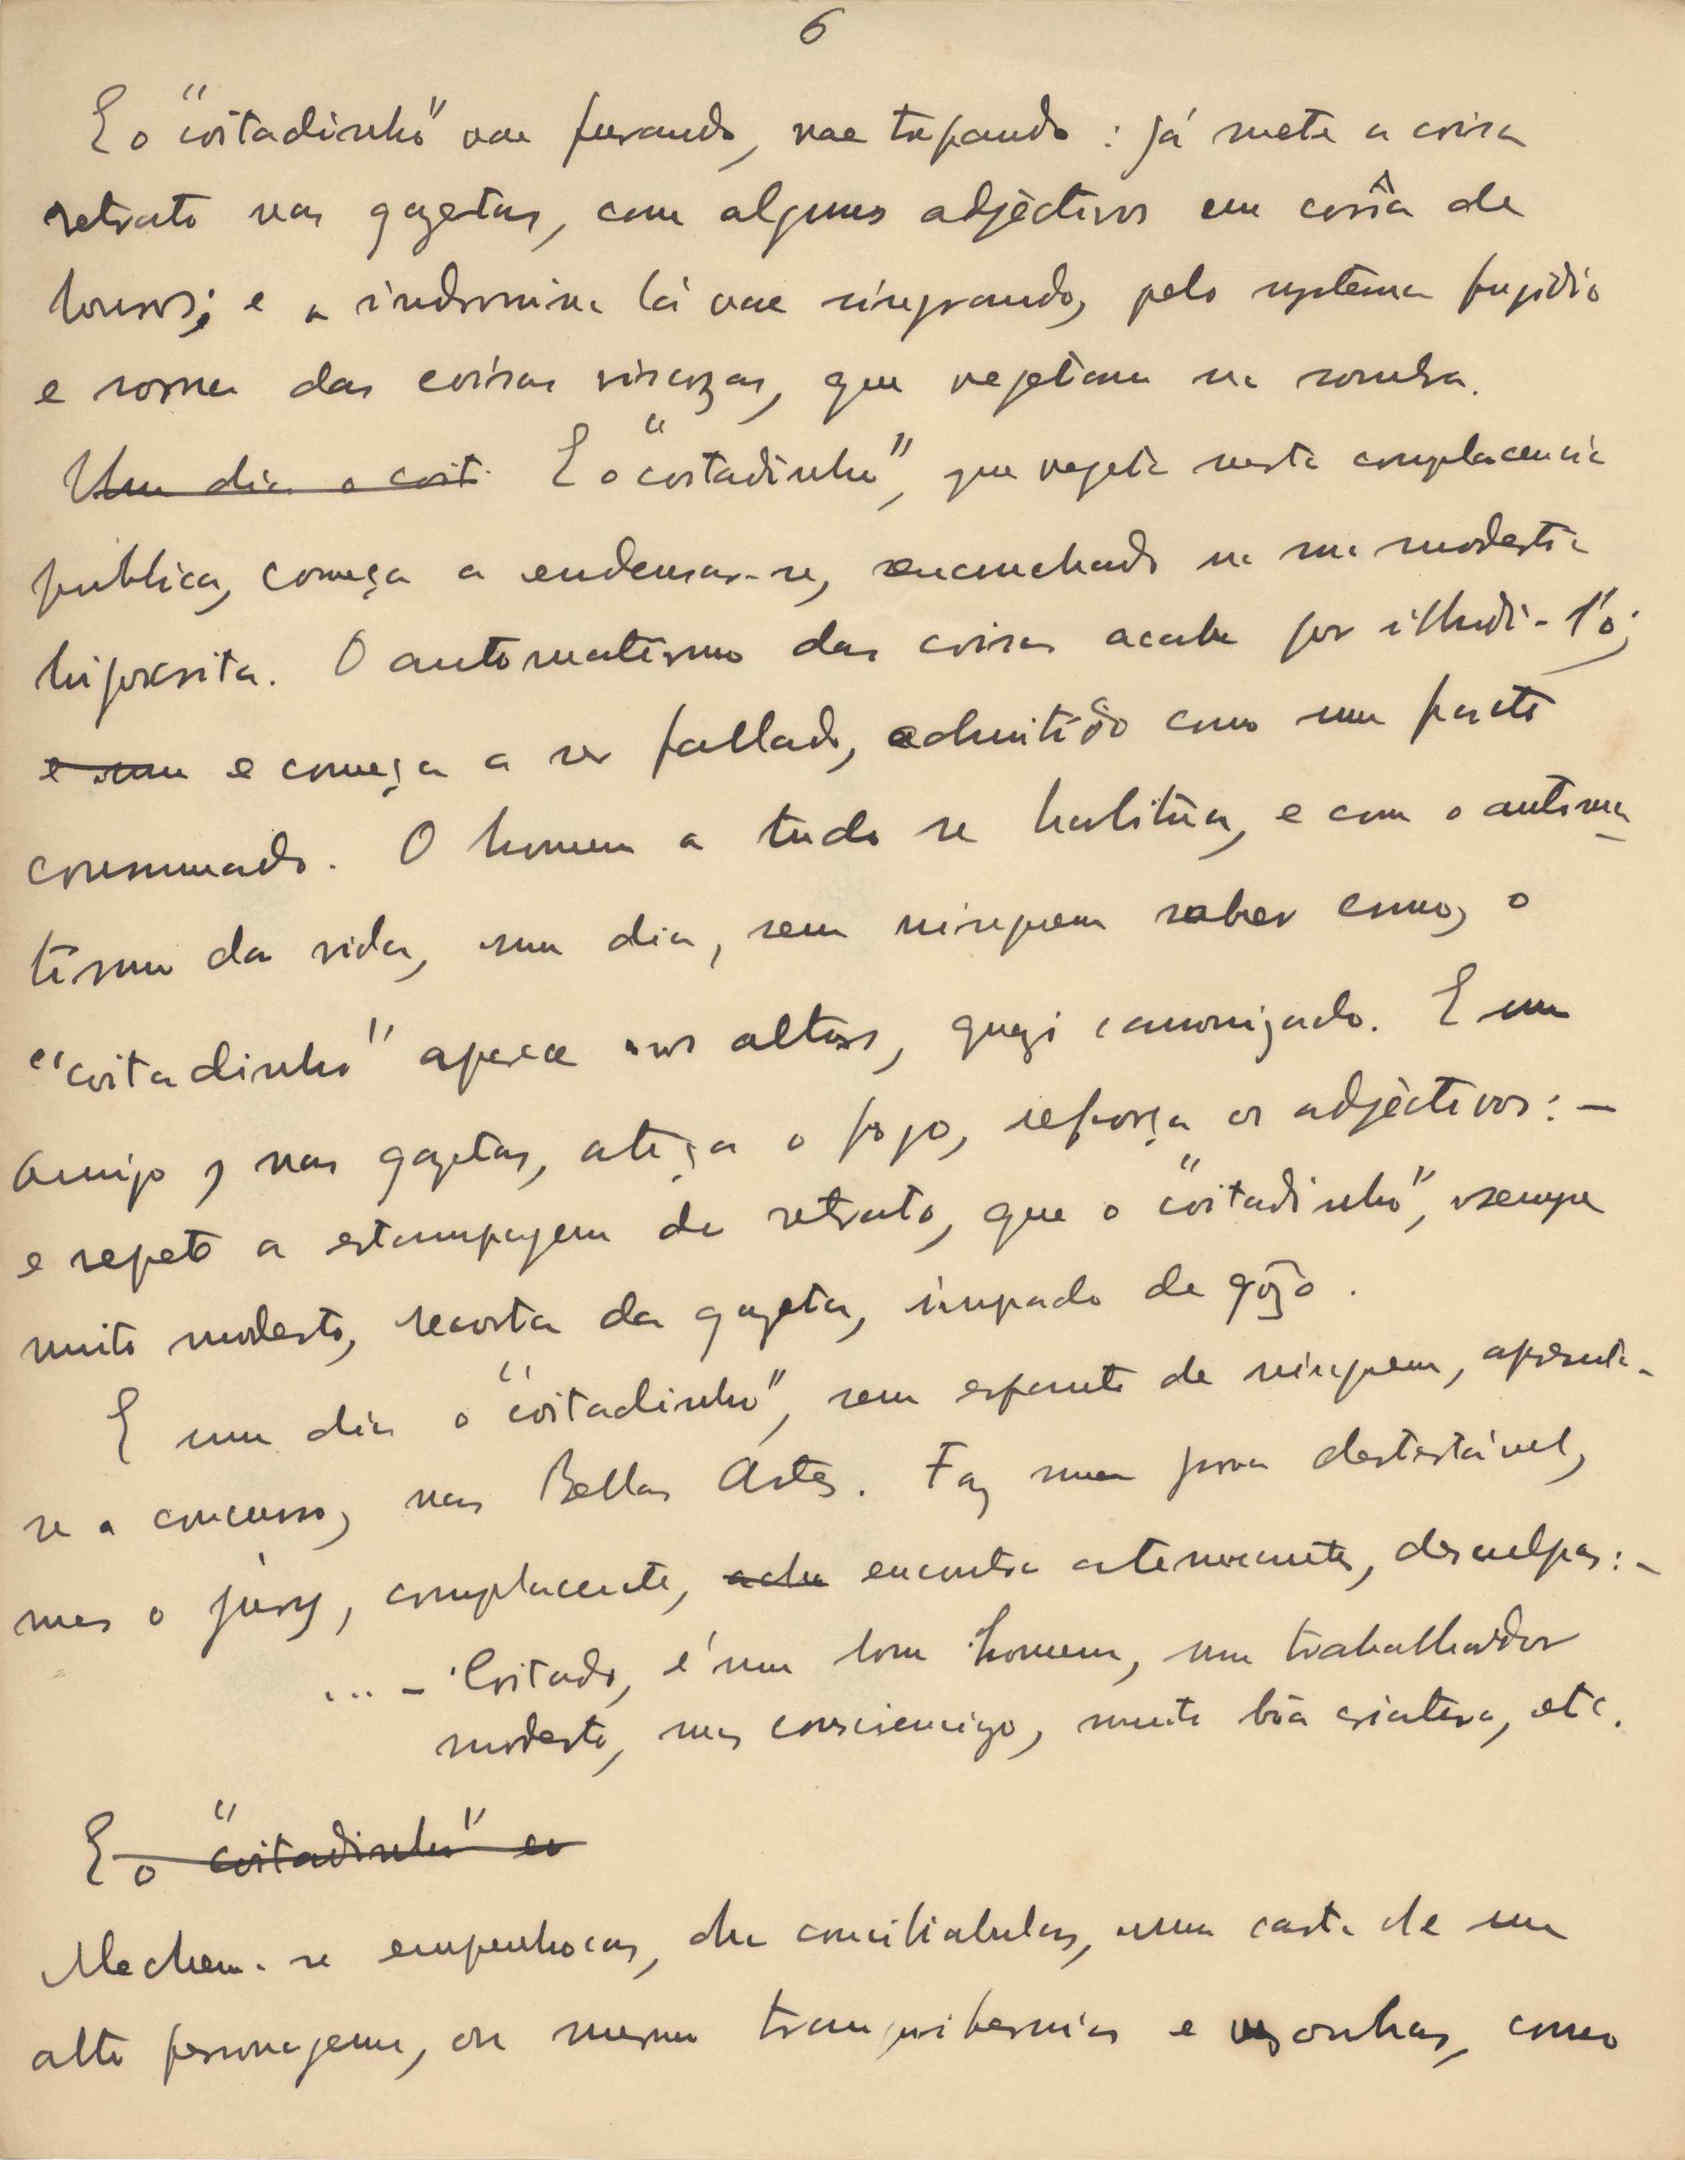 6
E o "coitadinho" vae furando, vae trepando: já mete a coisa
retrato nas gazetas, com alguns adjèctivos em corôa de
louros; e a indromina lá vae singrando, pelo systema fugidio
e sorna das coisas viscozas, que vejetam na sombra.
Um dia o coit. E o "coitadinho", que vegeta nesta complacencia
publica, começa a endeusar-se, enconchado na sua modestia
hipocrita. O automatismo das coisas acaba por illudi-l'o;
e um e começa a ser fallado, admitido como um facto
consummado. O homem a tudo se habitúa, e com o automa
tismo da vida, um dia, sem ninguem saber como, o
"coitadinho" aparece nos altares, quazi canonizado. E um
amigo, nas gazetas, atiça o fogo, reforça os adjèctivos: –
e repete a estampagem do retrato, que o "coitadinho", sempre
muito modesto, recorta da gazeta, impado de gôzo.
E um dia o "coitadinho", sem espanto de ninguem, apresenta-
se a concurso, nas Bellas Artes. Faz uma prova destestável,
mas o júry, complacente, acha encontra atenuantes, desculpas: –
... – Coitado, é um bom homem, um trabalhador
modesto, mas consciencizo, muito bôa criatura, etc.
E o "coitadinho" en
Mechem-se empenhocas, conciliabulos, uma carta de um
alto personagem, ou mesmo tranquibernias e vergonhas, como